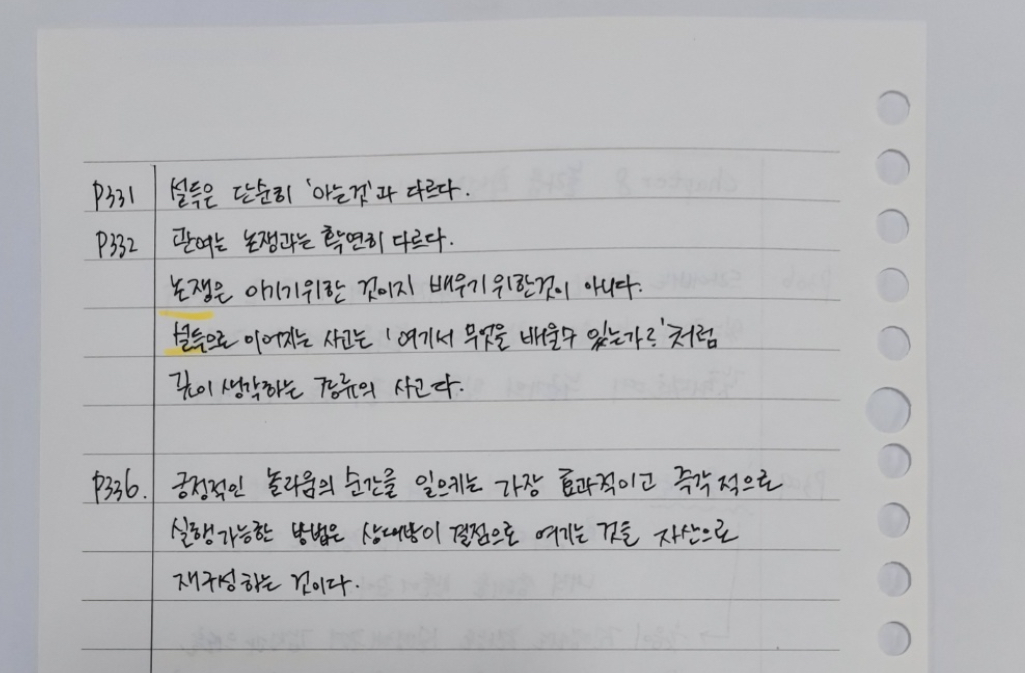 P331 설득은 단순히 '아는것'과 다르다.
P332 관여는 논쟁과는 확연히 다르다.
논쟁은 이기기위한 것이지 배우기 위한것이 아니다.
설득으로 이어지는 사고는 '여기서 무엇을 배울수 있는가?'처럼
깊이 생각하는 종류의 사고다.
P336. 긍정적인 놀라움의 순간을 일으키는 가장 효과적이고 즉각적으로
실행가능한 방법은 상대방이 결점으로 여기는 것을 자산으로
재구성하는 것이다.